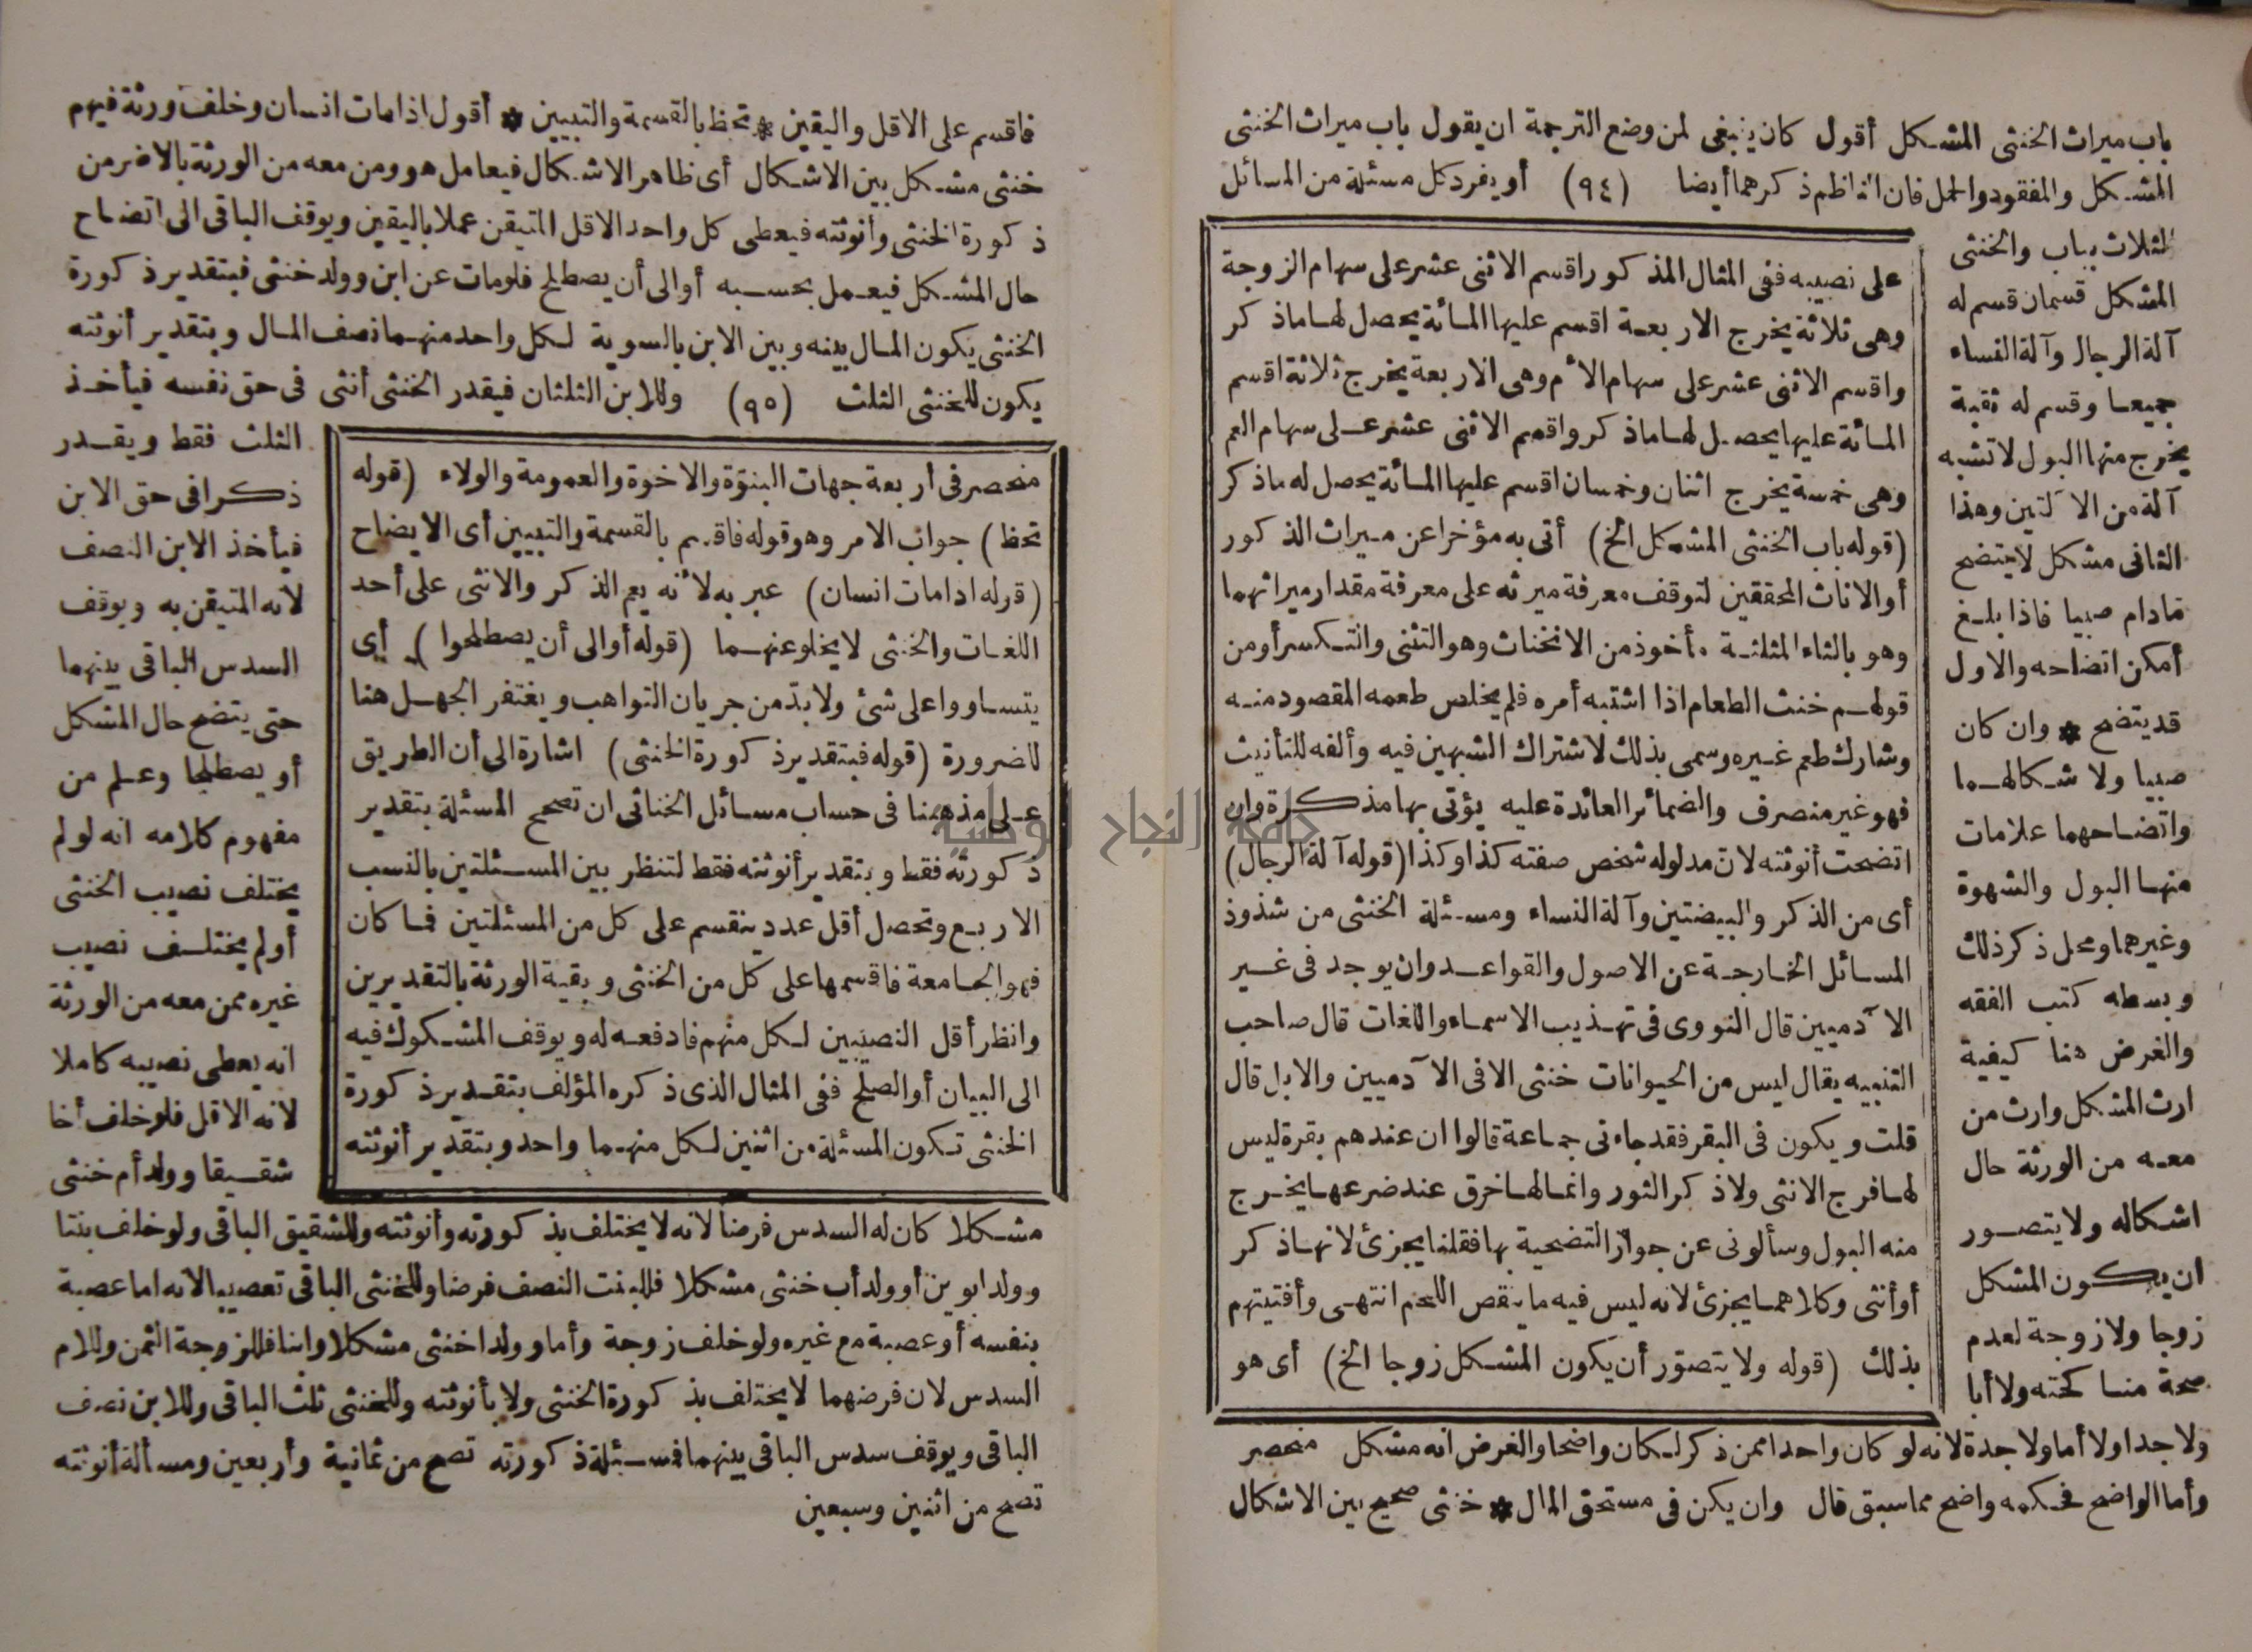 باب ميراث الخنثى المشكل أقول كان ينبغى لمن وضع الترجمة ان يقول باب ميراث الخنثى
المشكل والمفقود والحمل فان الناظم ذكرهما أيضا (٩٤) أو يفرد كل مسئلة من المسائل
الثلاث بباب والخنثى
المشكل قسمان قسم له
آلة الرجال وآلة النساء
جميعا وقسم له ثقبة
يخرج منها البول لا تشبه
آلة من الآلتين وهذا
الثانى مشكل لا يتضح
مادام صبيا فاذا بلغ
أمكن اتضاحه والاول
قد يتضح * وان كان
صبيا ولاشكالهما
واتضاحهما علامات
منها البول والشهوة
وغيرهما ومحل ذكر ذلك
وبسطه كتب الفقه
والغرض هنا كيفية
ارث المشكل وارث من
معه من الورثة حال
اشكاله ولا يتصور
ان يكون المشكل
زوجا ولا زوجة لعدم
صحة مناكحته ولا أبا
ولا جدا ولا أما ولا جدة لانه لو كان واحدا ممن ذكر لكان واضحا والغرض انه مشكل منحصر
وأما الواضح فحكمه واضح مما سبق قال وان يكن فى مستحق المال * خنثى صحيح بين الاشكال
على نصيبه ففى المثال المذكور اقسم الاثنى عشر على سهام الزوجة
وهى ثلاثة يخرج الاربعة اقسم عليها المائة يحصل لها ماذكر
واقسم الاثنى عشر على سهام الأم وهى الاربعة يخرج ثلاثة اقسم
المائة عليها يحصل لها ماذكر واقسم الاثنى عشر على سهام العم
وهى خمسة يخرج اثنان وخمسان اقسم عليها المائة يحصل له ماذكر
(قوله باب الخنثى المشكل الخ) أتى به مؤخرا عن ميراث الذكور
أو الاناث المحققين لتوقف معرفة ميرثه على معرفة مقدار ميراثهما
وهو بالثاء المثلثة مأخوذ من الانخناث وهو التثنى والتكسر أو من
قولهم خنث الطعام اذا اشتبه أمره فلم يخلص طعمه المقصود منه
وشارك طعم غيره وسمى بذلك لاشتراك الشبهين فيه وألفه للتأنيث
فهو غير منصرف والضمائر العائدة عليه يؤتى بها مذكرة وان
اتضحت أنوثته لان مدلوله شخص صفته كذا وكذا (قوله آلة الرجال)
أى من الذكر والبيضتين وآلة النساء ومسئلة الخنثى من شذوذ
المسائل الخارجة عن الاصول والقواعد وان يوجد فى غير
الآدميين قال النووى فى تهذيب الاسماء واللغات قال صاحب
التنبيه يقال ليس من الحيوانات خنثى الا فى الآدميين والابل قال
قلت ويكون فى البقر فقد جاءنى جماعة قالوا ان عندهم بقرة ليس
لها فرج الانثى ولا ذكر الثور وانما لها خرق عند ضرعها يخرج
منه البول وسألونى عن جواز التضحية بها فقلنا يجزئ لانها ذكر
أو أنثى وكلاهما يجزئ لانه ليس فيه ما ينقص اللحم انتهى وأفتيتهم
بذلك (قوله ولا يتصور أن يكون المشكل زوجا الخ) أى هو
فاقسم على الاقل واليقين * تحظ بالقسمة والتبيين * أقول اذا مات انسان وخلف ورثة فيهم
خنثى مشكل بين الاشكال أى ظاهر الاشكال فيعامل هو ومن معه من الورثة بالاضر من
ذكورة الخنثى وأنوثته فيعطى كل واحد الاقل المتيقن عملا باليقين ويوقف الباقى الى اتضاح
حال المشكل فيعمل بحسبه أو الى أن يصطلح فلو مات عن ابن وولد خنثى فبتقدير ذكورة
الخنثى يكون المال بينه وبين الابن بالسوية لكل واحد منهما نصف المال وبتقدير أنوثته
يكون للخنثى الثلث (٩٥) وللابن الثلثان فيقدر الخنثى أنثى فى حق نفسه فيأخذ
الثلث فقط ويقدر
ذكرا فى حق الابن
فيأخذ الابن النصف
لانه المتيقن به ويوقف
السدس الباقى بينهما
حتى يتضح حال المشكل
أو يصطلحا وعلم من
مفهوم كلامه انه لو لم
يختلف نصيب الخنثى
أو لم يختلف نصيب
غيره ممن معه من الورثة
انه يعطى نصيبه كاملا
لانه الاقل فلو خلف أخا
شقيقا وولد أم خنثى
مشكلا كان له السدس فرضا لانه لا يختلف بذكورته وأنوثته وللشقيق الباقى ولو خلف بنتا
وولد ابوين أو ولد أب خنثى مشكلا فللبنت النصف فرضا وللخنثى الباقى تعصيبا لانه اما عصبة
بنفسه أو عصبة مع غيره ولو خلف زوجة وأما وولدا خنثى مشكلا وابنا فللزوجة الثمن وللام
السدس لان فرضهما لا يختلف بذكورة الخنثى ولا بأنوثته وللخنثى ثلث الباقى وللابن نصف
الباقى ويوقف سدس الباقى بينهما فمسئلة ذكورته تصح من ثمانية وأربعين ومسألة أنوثته
تصح من اثنين وسبعين
منحصر فى أربعة جهات البنوّة والاخوة والعمومة والولاء (قوله
تحظ) جواب الامر وهو قوله فاقسم بالقسمة والتبيين أى الايضاح
(قوله اذا مات انسان) عبر به لأنه يعم الذكر والانثى على أحد
اللغات والخنثى لا يخلو عنهما (قوله أو الى أن يصطلحوا) أى
يتساووا على شئ ولا بدّ من جريان التواهب ويغتفر الجهل هنا
للضرورة (قوله فبتقدير ذكورة الخنثى) اشارة الى أن الطريق
على مذهبنا فى حساب مسائل الخناثى ان تصحح المسئلة بتقدير
ذكورته فقط وبتقدير أنوثته فقط لتنظر بين المسئلتين بالنسب
الاربع وتحصل أقل عدد ينقسم على كل من المسئلتين فما كان
فهو الجامعة فاقسمها على كل من الخنثى وبقية الورثة بالتقديرين
وانظر أقل النصيبين لكل منهم فادفعه له ويوقف المشكوك فيه
الى البيان أو الصلح ففى المثال الذى ذكره المؤلف بتقدير ذكورة
الخنثى تكون المسئلة من اثنين لكل منهما واحد وبتقدير أنوثته
جامعة النجاح الوطنية